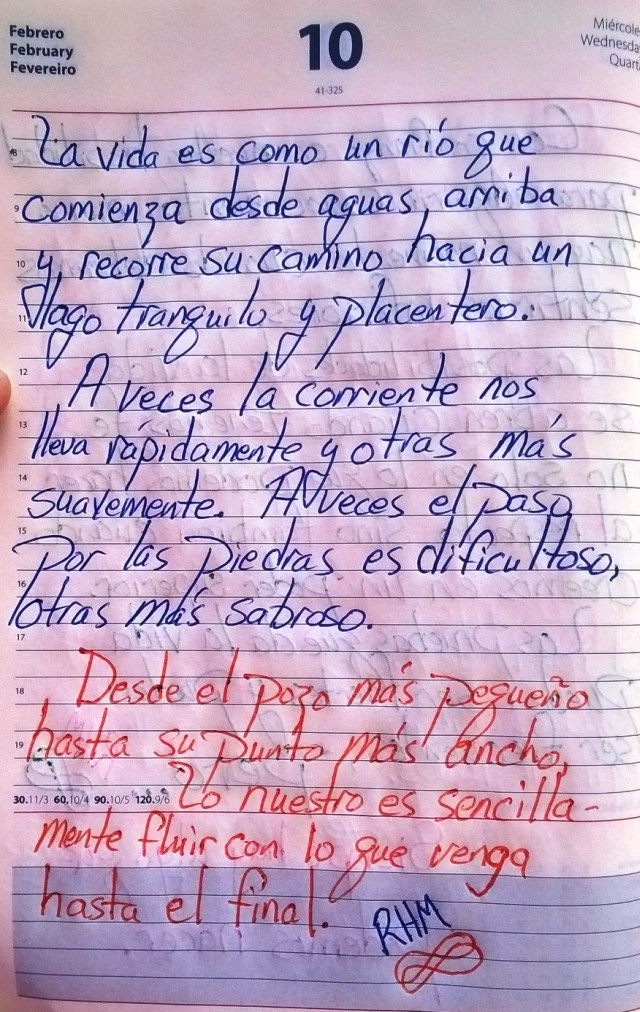 Febrero
February
Fevereiro
10
41-325
Miércole
Wednesda
Quart
8 La vida es como un río que
9 comienza desde aguas arriba
10 y recorre su camino hacia un
11 lago tranquilo y placentero.
12 A veces la corriente nos
13 lleva rápidamente y otras más
14 suavemente. A veces el paso
15 por las piedras es dificultoso,
16 otras más sabroso.
17
18 Desde el pozo más pequeño
19 hasta su punto más ancho,
30.11/3 60.10/4 90.10/5 120.9/6 Lo nuestro es sencilla-
mente fluir con lo que venga
hasta el final.
RHM